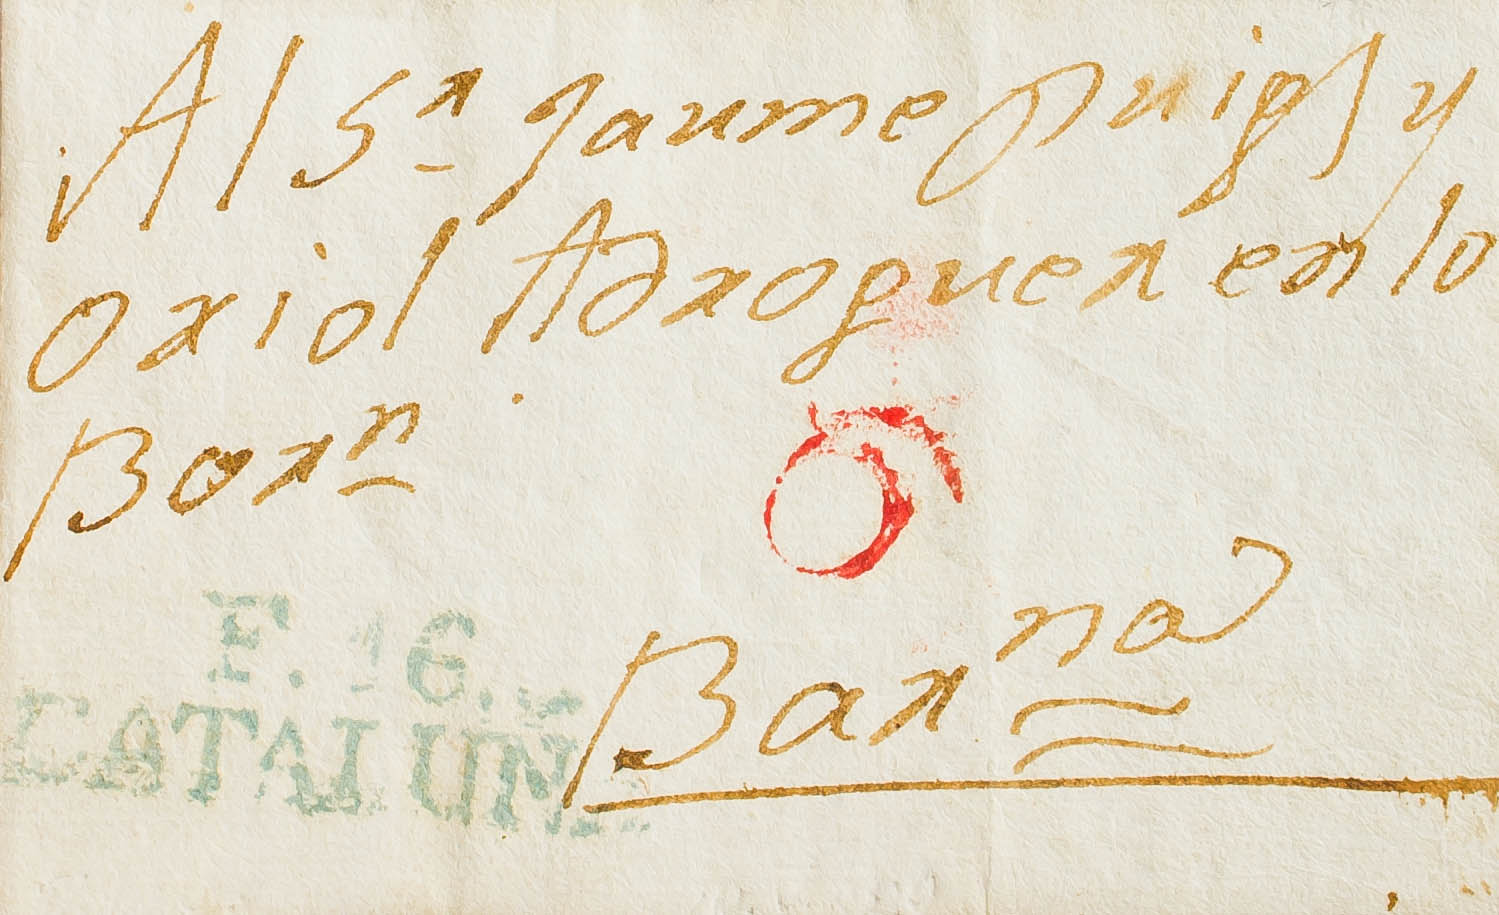 Al Sr Jaume Puig, y
oriol Adroguer en lo
Born
F. 16.
CATALUÑA.
Barna